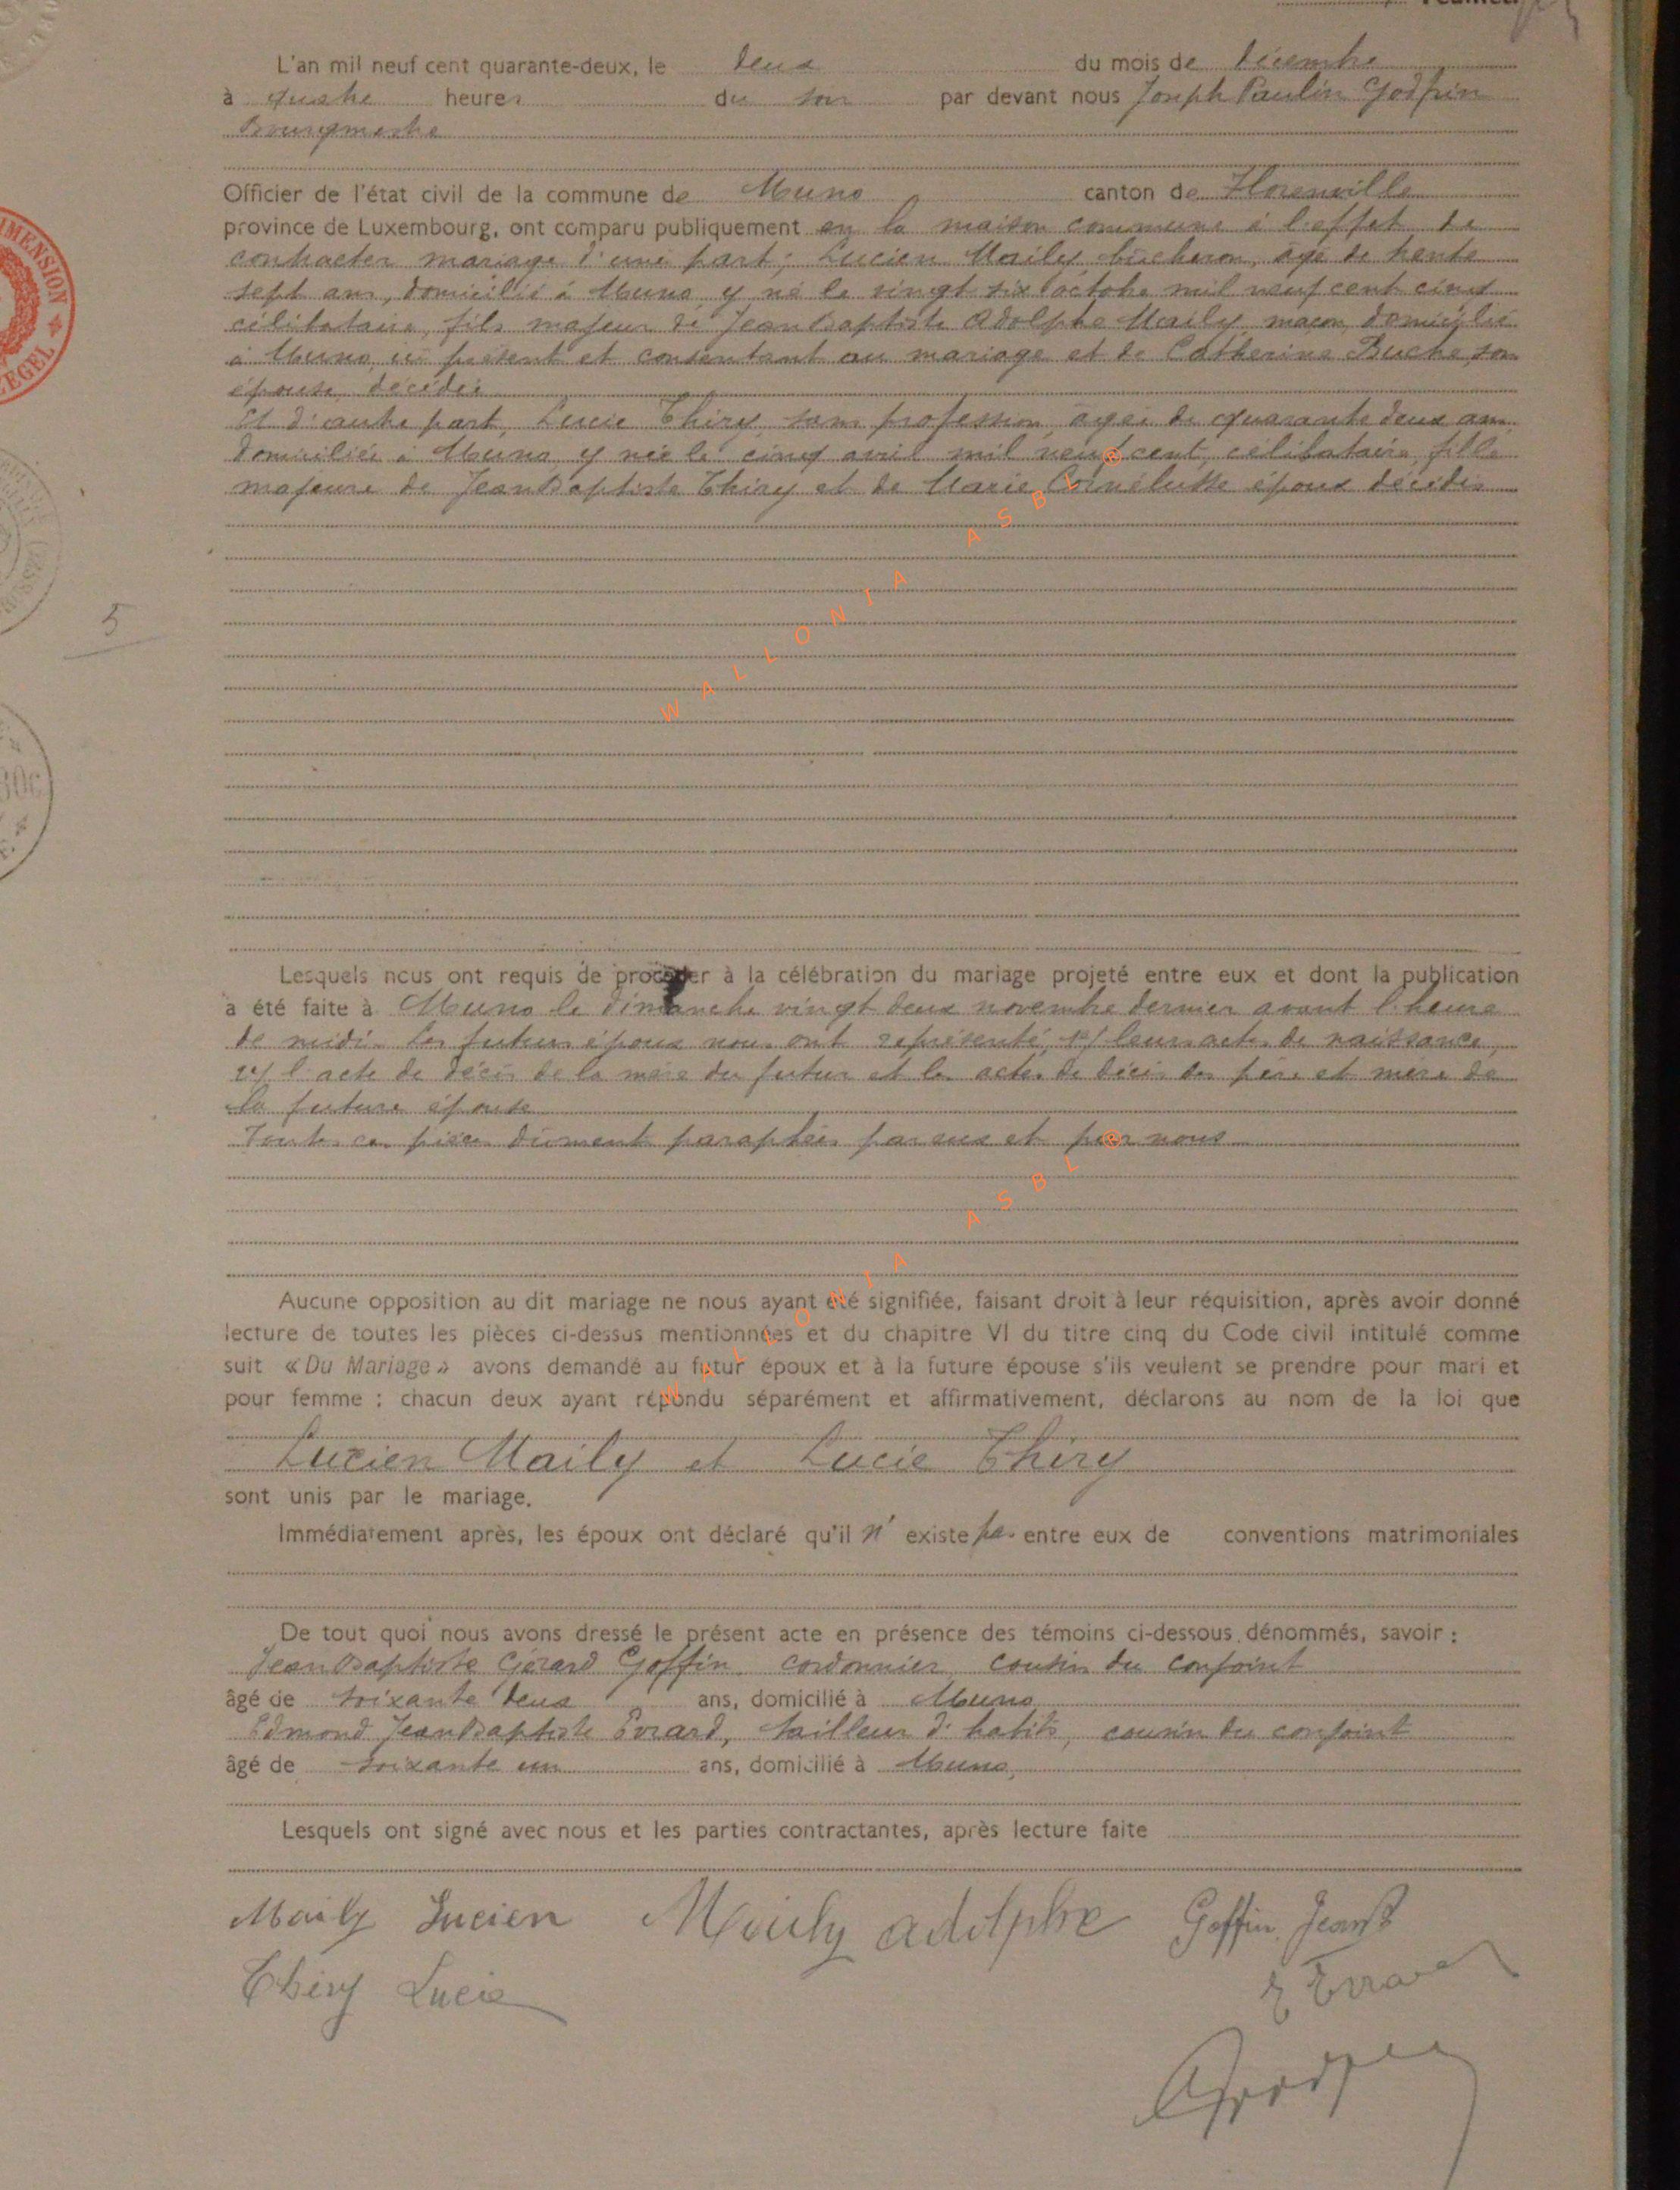 L'an mil neuf cent quarante-deux, le deux du mois de décembre
à quatre heures du soir par devant nous Joseph Paulin Godfrin
Bourgmestre
Officier de l'état civil de la commune de Muno canton de Florenville
province de Luxembourg, ont comparu publiquement en la maison commune à l'effet de
contracter mariage d'une part; Lucien Maily, bûcheron, âgé de trente
sept ans, domicilié à Muno, y né le vingt six octobre mil neuf cent cinq
célibataire, fils majeur de Jean Baptiste Adolphe Maily, maçon, domicilié
à Muno, ici présent et consentant au mariage et de Catherine Buche, son
épouse, décédée
Et d'autre part, Lucie Thiry, sans profession, âgée de quarante deux ans
domiciliée à Muno, y née le cinq avril mil neuf cent, célibataire, fille
majeure de Jean Baptiste Thiry et de Marie époux décédés
5
WALLONIA ASBL ®
Lesquels nous ont requis de procéder à la célébration du mariage projeté entre eux et dont la publication
a été faite à Muno le dimanche vingt deux novembre dernier avant l'heure
de midi. Les futurs époux nous ont représenté, 1°/ leurs actes de naissance,
2°/ l'acte de décès de la mère du futur et les actes de décès des père et mère de
la future épouse
Toutes ces pièces dûment paraphées par eux et par nous
WALLONIA ASBL ®
Aucune opposition au dit mariage ne nous ayant été signifiée, faisant droit à leur réquisition, après avoir donné
lecture de toutes les pièces ci-dessus mentionnées et du chapitre VI du titre cinq du Code civil intitulé comme
suit « Du Mariage » avons demandé au futur époux et à la future épouse s'ils veulent se prendre pour mari et
pour femme ; chacun deux ayant répondu séparément et affirmativement, déclarons au nom de la loi que
Lucien Maily et Lucie Thiry
sont unis par le mariage.
Immédiatement après, les époux ont déclaré qu'il n' existe pas entre eux de conventions matrimoniales
De tout quoi nous avons dressé le présent acte en présence des témoins ci-dessous dénommés, savoir :
Jean Baptiste Gérard Goffin, cordonnier, cousin du conjoint
âgé de soixante deux ans, domicilié à Muno
Edmond Jean Baptiste Evrard, tailleur d'habits, cousin du conjoint
âgé de soixante un ans, domicilié à Muno,
Lesquels ont signé avec nous et les parties contractantes, après lecture faite
Maily Lucien Maily Adolphe Goffin Jean B
Thiry Lucie E Evrard